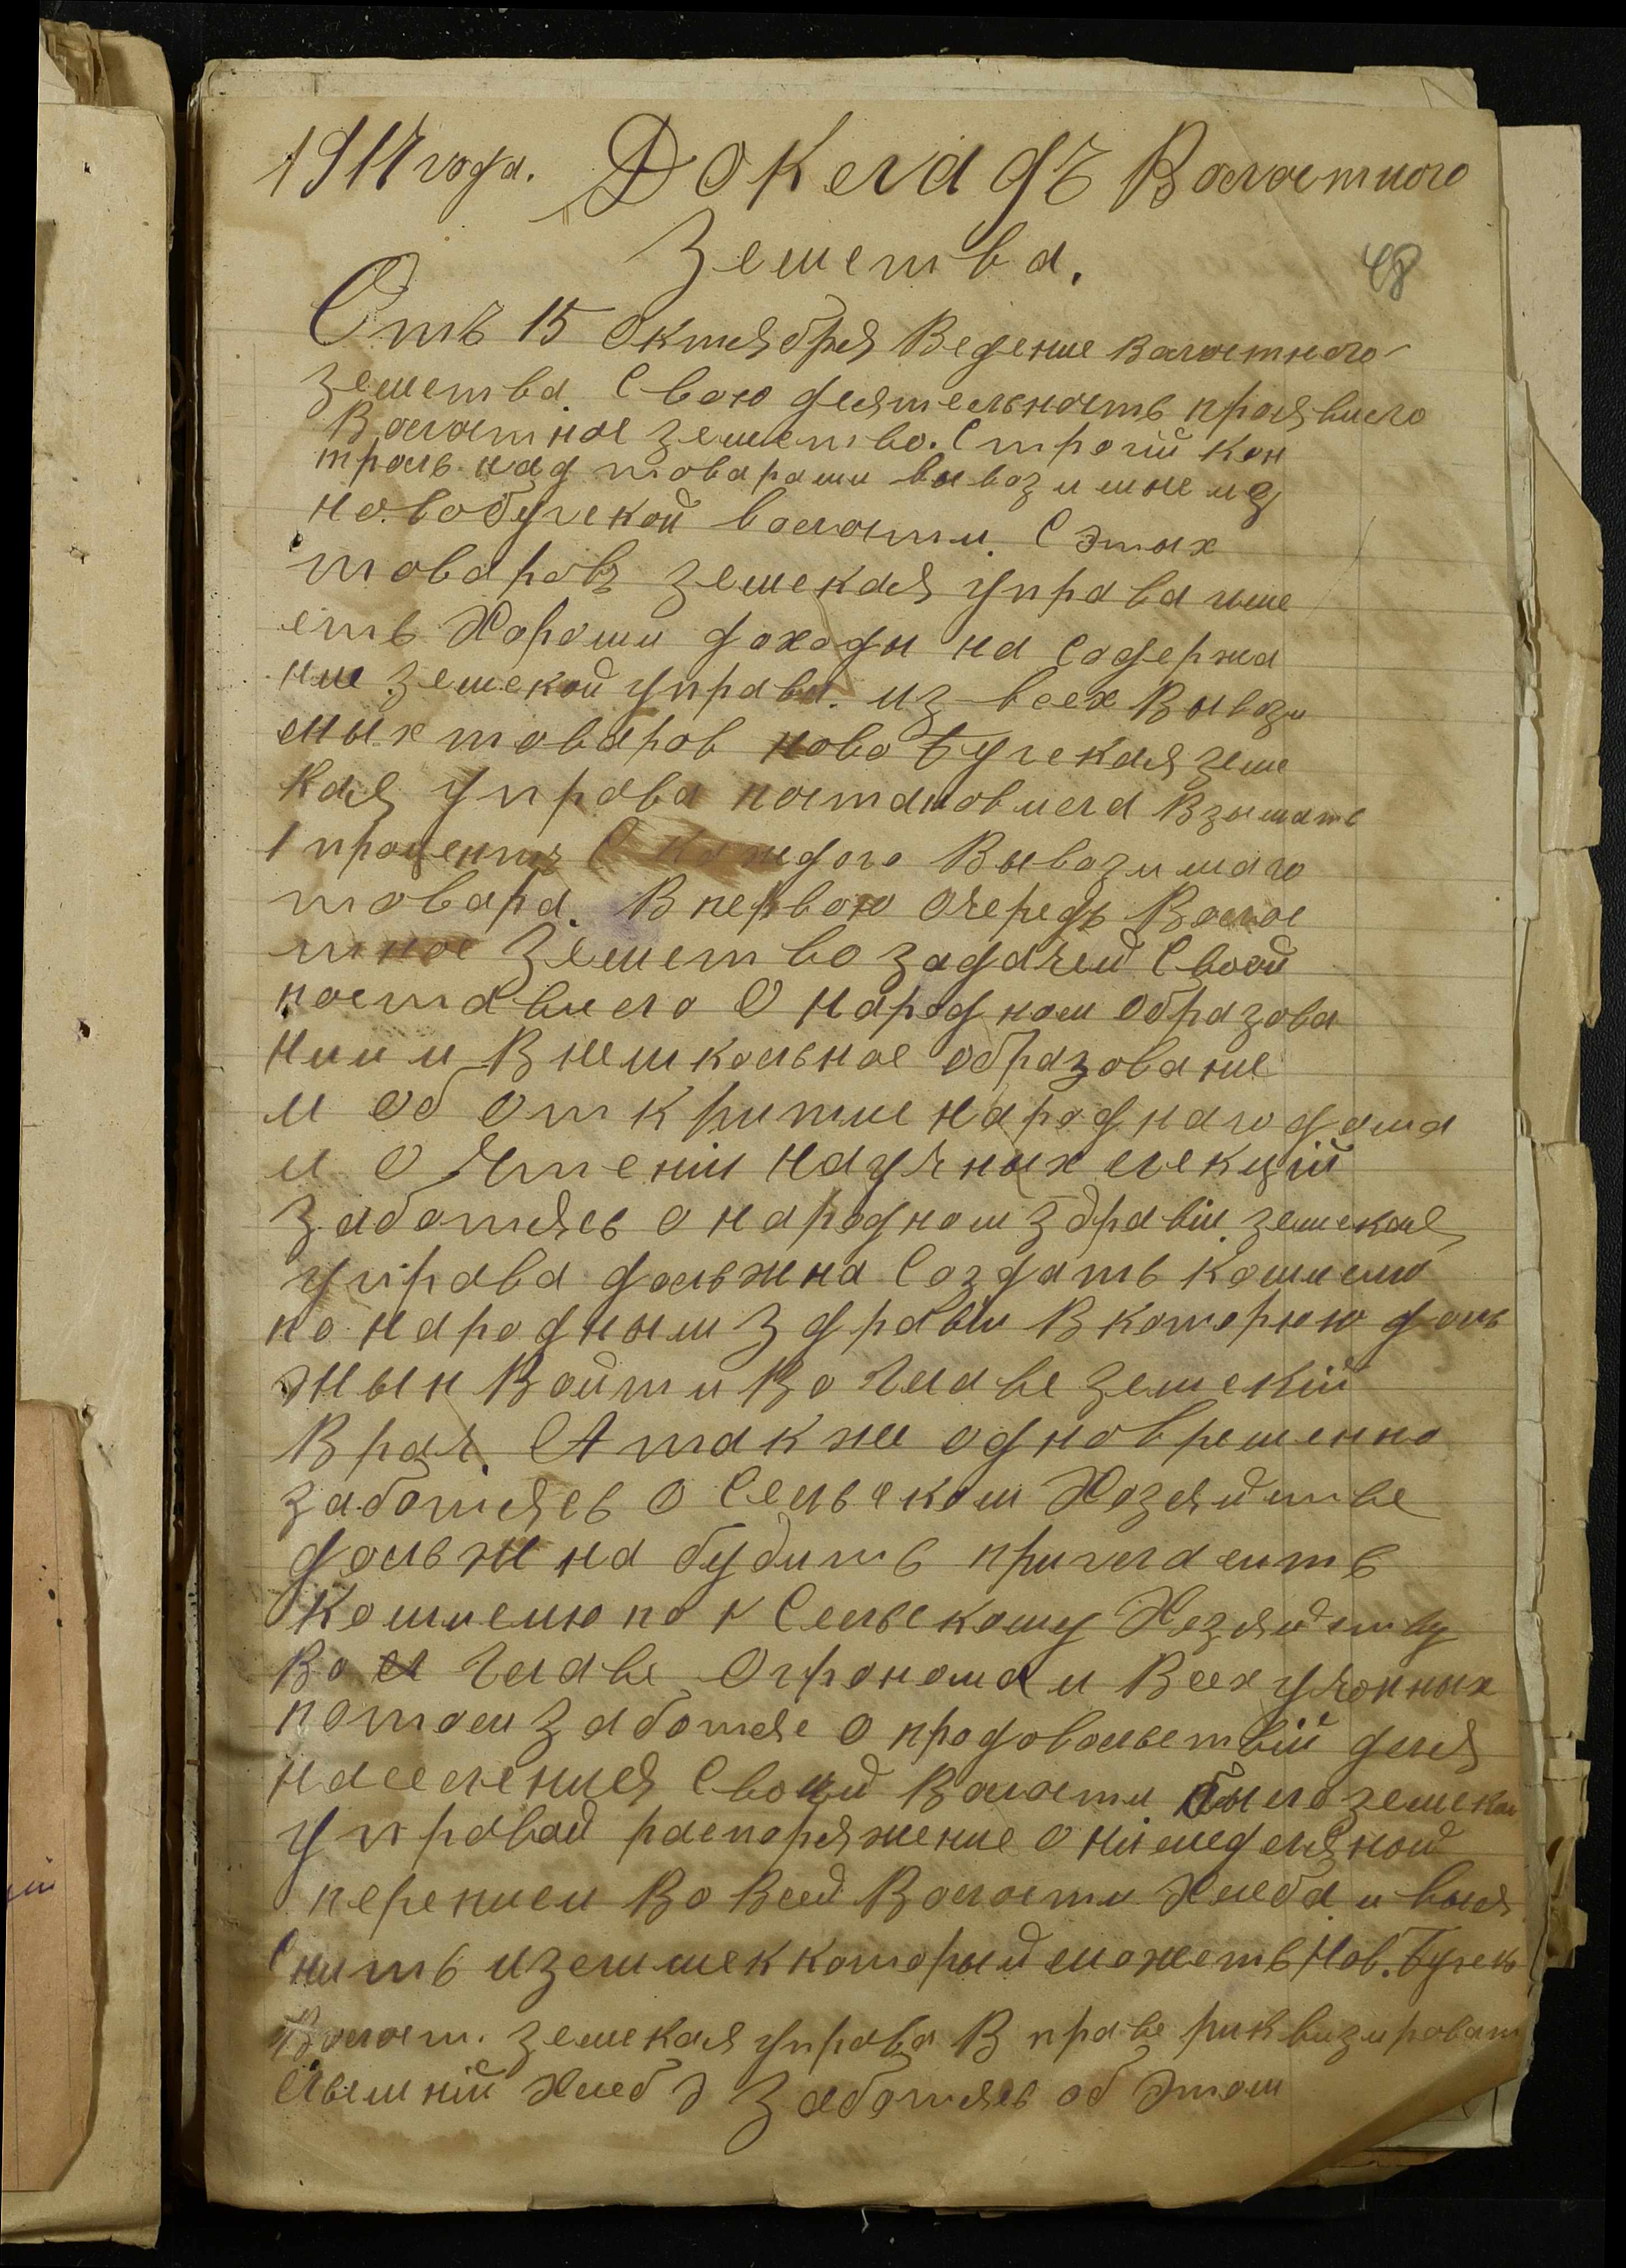 1917 года. Докладъ Волостного
Земства.
48
Отъ 15 Октября Ведение волостного
земства. Свою деятельность проявило
Волостное земство. Строгий кон
троль над товарами вывозимые из
новобугской волости. С этых
товаровъ земская управа име
етъ Хороши доходы на содержа
ние земской управы. из всех Вывози
мых товаров ново Бугская зем
кая управа постановила Взымать
1 процентъ С каждого Вывозимаго
товара. В первою Очередь Волос
тное Земство задачей Своой
поставило О народном образова
нии и Внешкольное образование
и об открытие народнаго дома
и О Чтеніи научных лекцій
заботясь о народном здравіи. земская
управа должна Создать комисию
по народным здравіи В которую доль
жын Войти Во главе земскій
Врач. А также одновременно
заботясь О Сельском Хозяйстве
должна будить пригласить
комисию по к Сельскому Хозяйству
Во главе Огронома и Всех учонных
потом заботяс о продовольствій для
населения Своий Волости было земской
управой распоряжение О немедленной
переписи Во Всей Волости Хлеба и выя
снить излишек который можетъ Нов. Бугск
Волост. земская управа В праве риквизироват
Хлеб Заботясь об этом